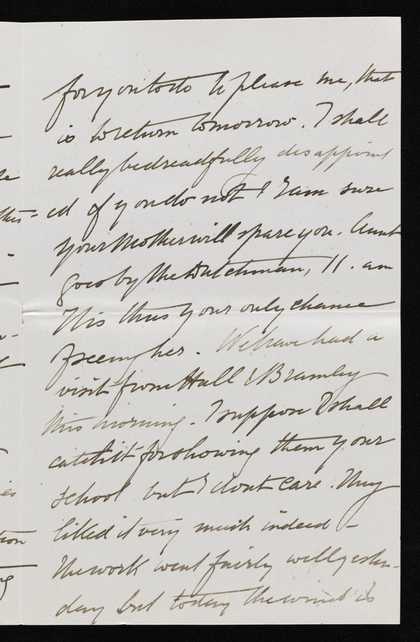 for you to do to please me, that
is to return tomorrow. I shall
really be dreadfully disappoint
ed if you do not & I am sure
your Mother will spare you. Aunt
goes by the Dutchman, 11. am
This thus your only chance
of seeing her. We have had a
visit from Hall & Bramley
this morning. I suppose I shall
catch it for showing them your
school but I dont care. They
liked it very much indeed -
The work went fairly well yester-
day but today the wind is